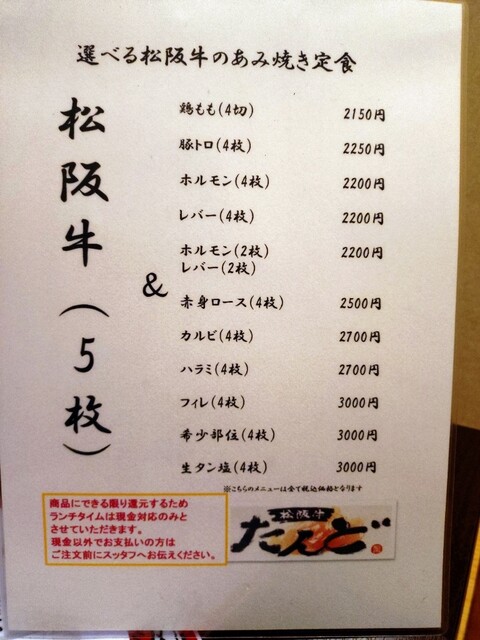 選べる松阪牛のあみ焼き定食
松阪牛(5枚)
&
鶏もも(4切) 2150円
豚トロ(4枚) 2250円
ホルモン(4枚) 2200円
レバー(4枚) 2200円
ホルモン(2枚) 2200円
レバー(2枚)
赤身ロース(4枚) 2500円
カルビ(4枚) 2700円
ハラミ(4枚) 2700円
フィレ(4枚) 3000円
希少部位(4枚) 3000円
生タン塩(4枚) 3000円
※こちらのメニューは全て税込価格となります
商品にできる限り還元するため
ランチタイムは現金対応のみと
させていただきます。
現金以外でお支払いの方は
ご注文前にスッタフへお伝えください。
松阪牛
たんど